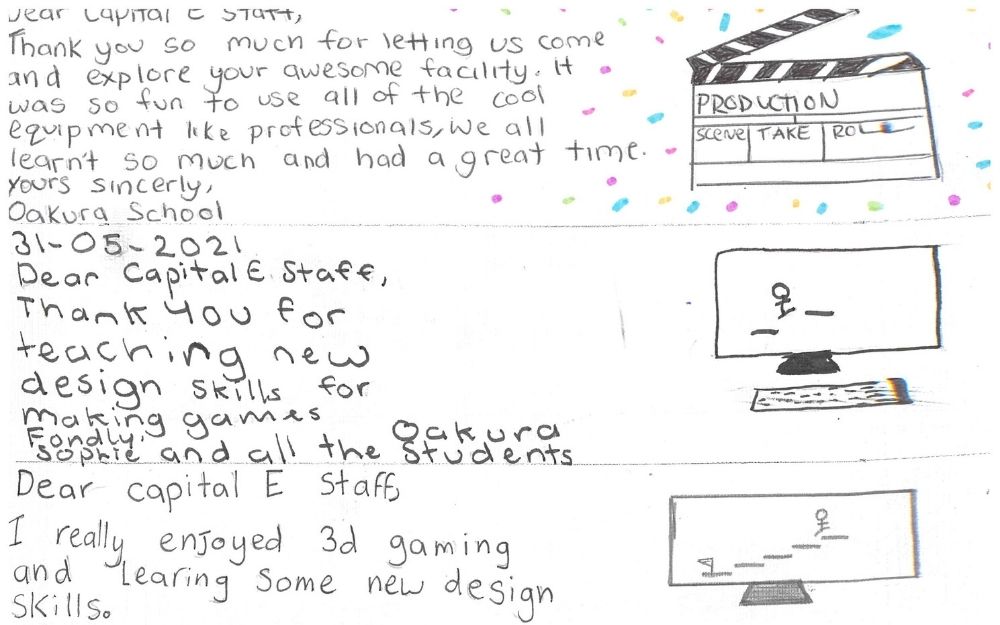 Dear Capital E Staff,
Thank you so much for letting us come
and explore your awesome facility. It
was so fun to use all of the cool
equipment like professionals, we all
learn't so much and had a great time.
Yours sincerly,
Oakura School
PRODUCTION
SCENE TAKE ROL
31-05-2021
Dear Capital E Staff,
Thank you for
teaching new
design skills for
making games
Fondly,
Sophie and all the Oakura Students
Dear capital E Staff,
I really enjoyed 3d gaming
and learing some new design
skills.